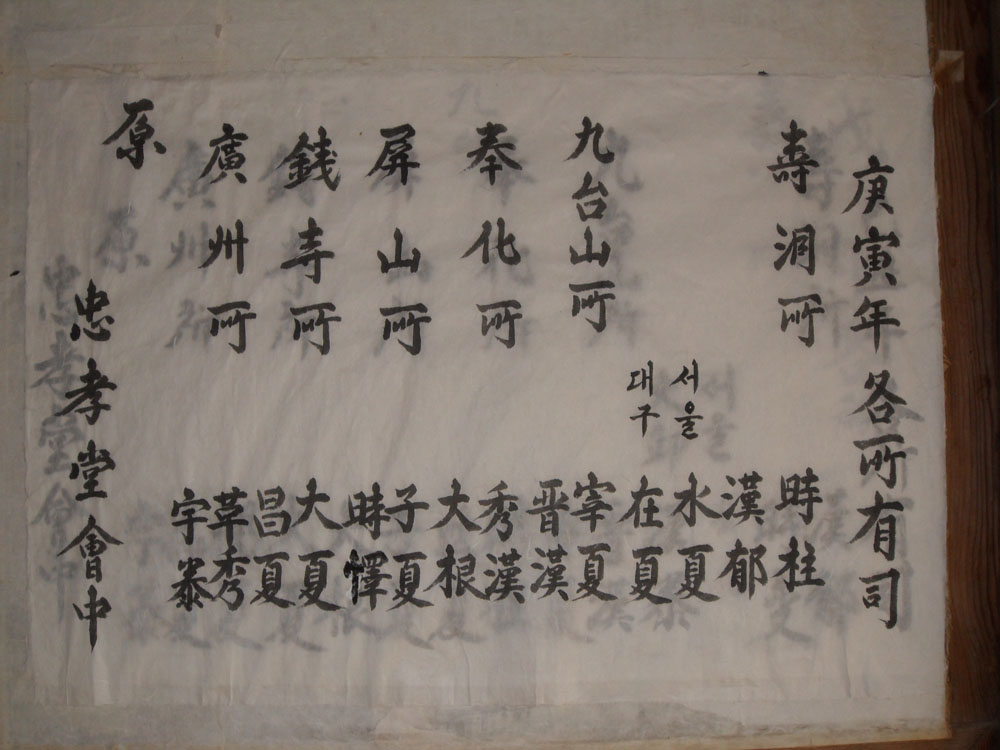 庚寅年各所有司
壽洞所 時柱
漢郁
서울 水夏
대구 在夏
九台山所 宰夏
晋漢
奉化所 秀漢
大根
屛山所 子夏
時懌
錢寺所 大夏
昌夏
廣州所 草秀
宇泰
原
忠孝堂會中